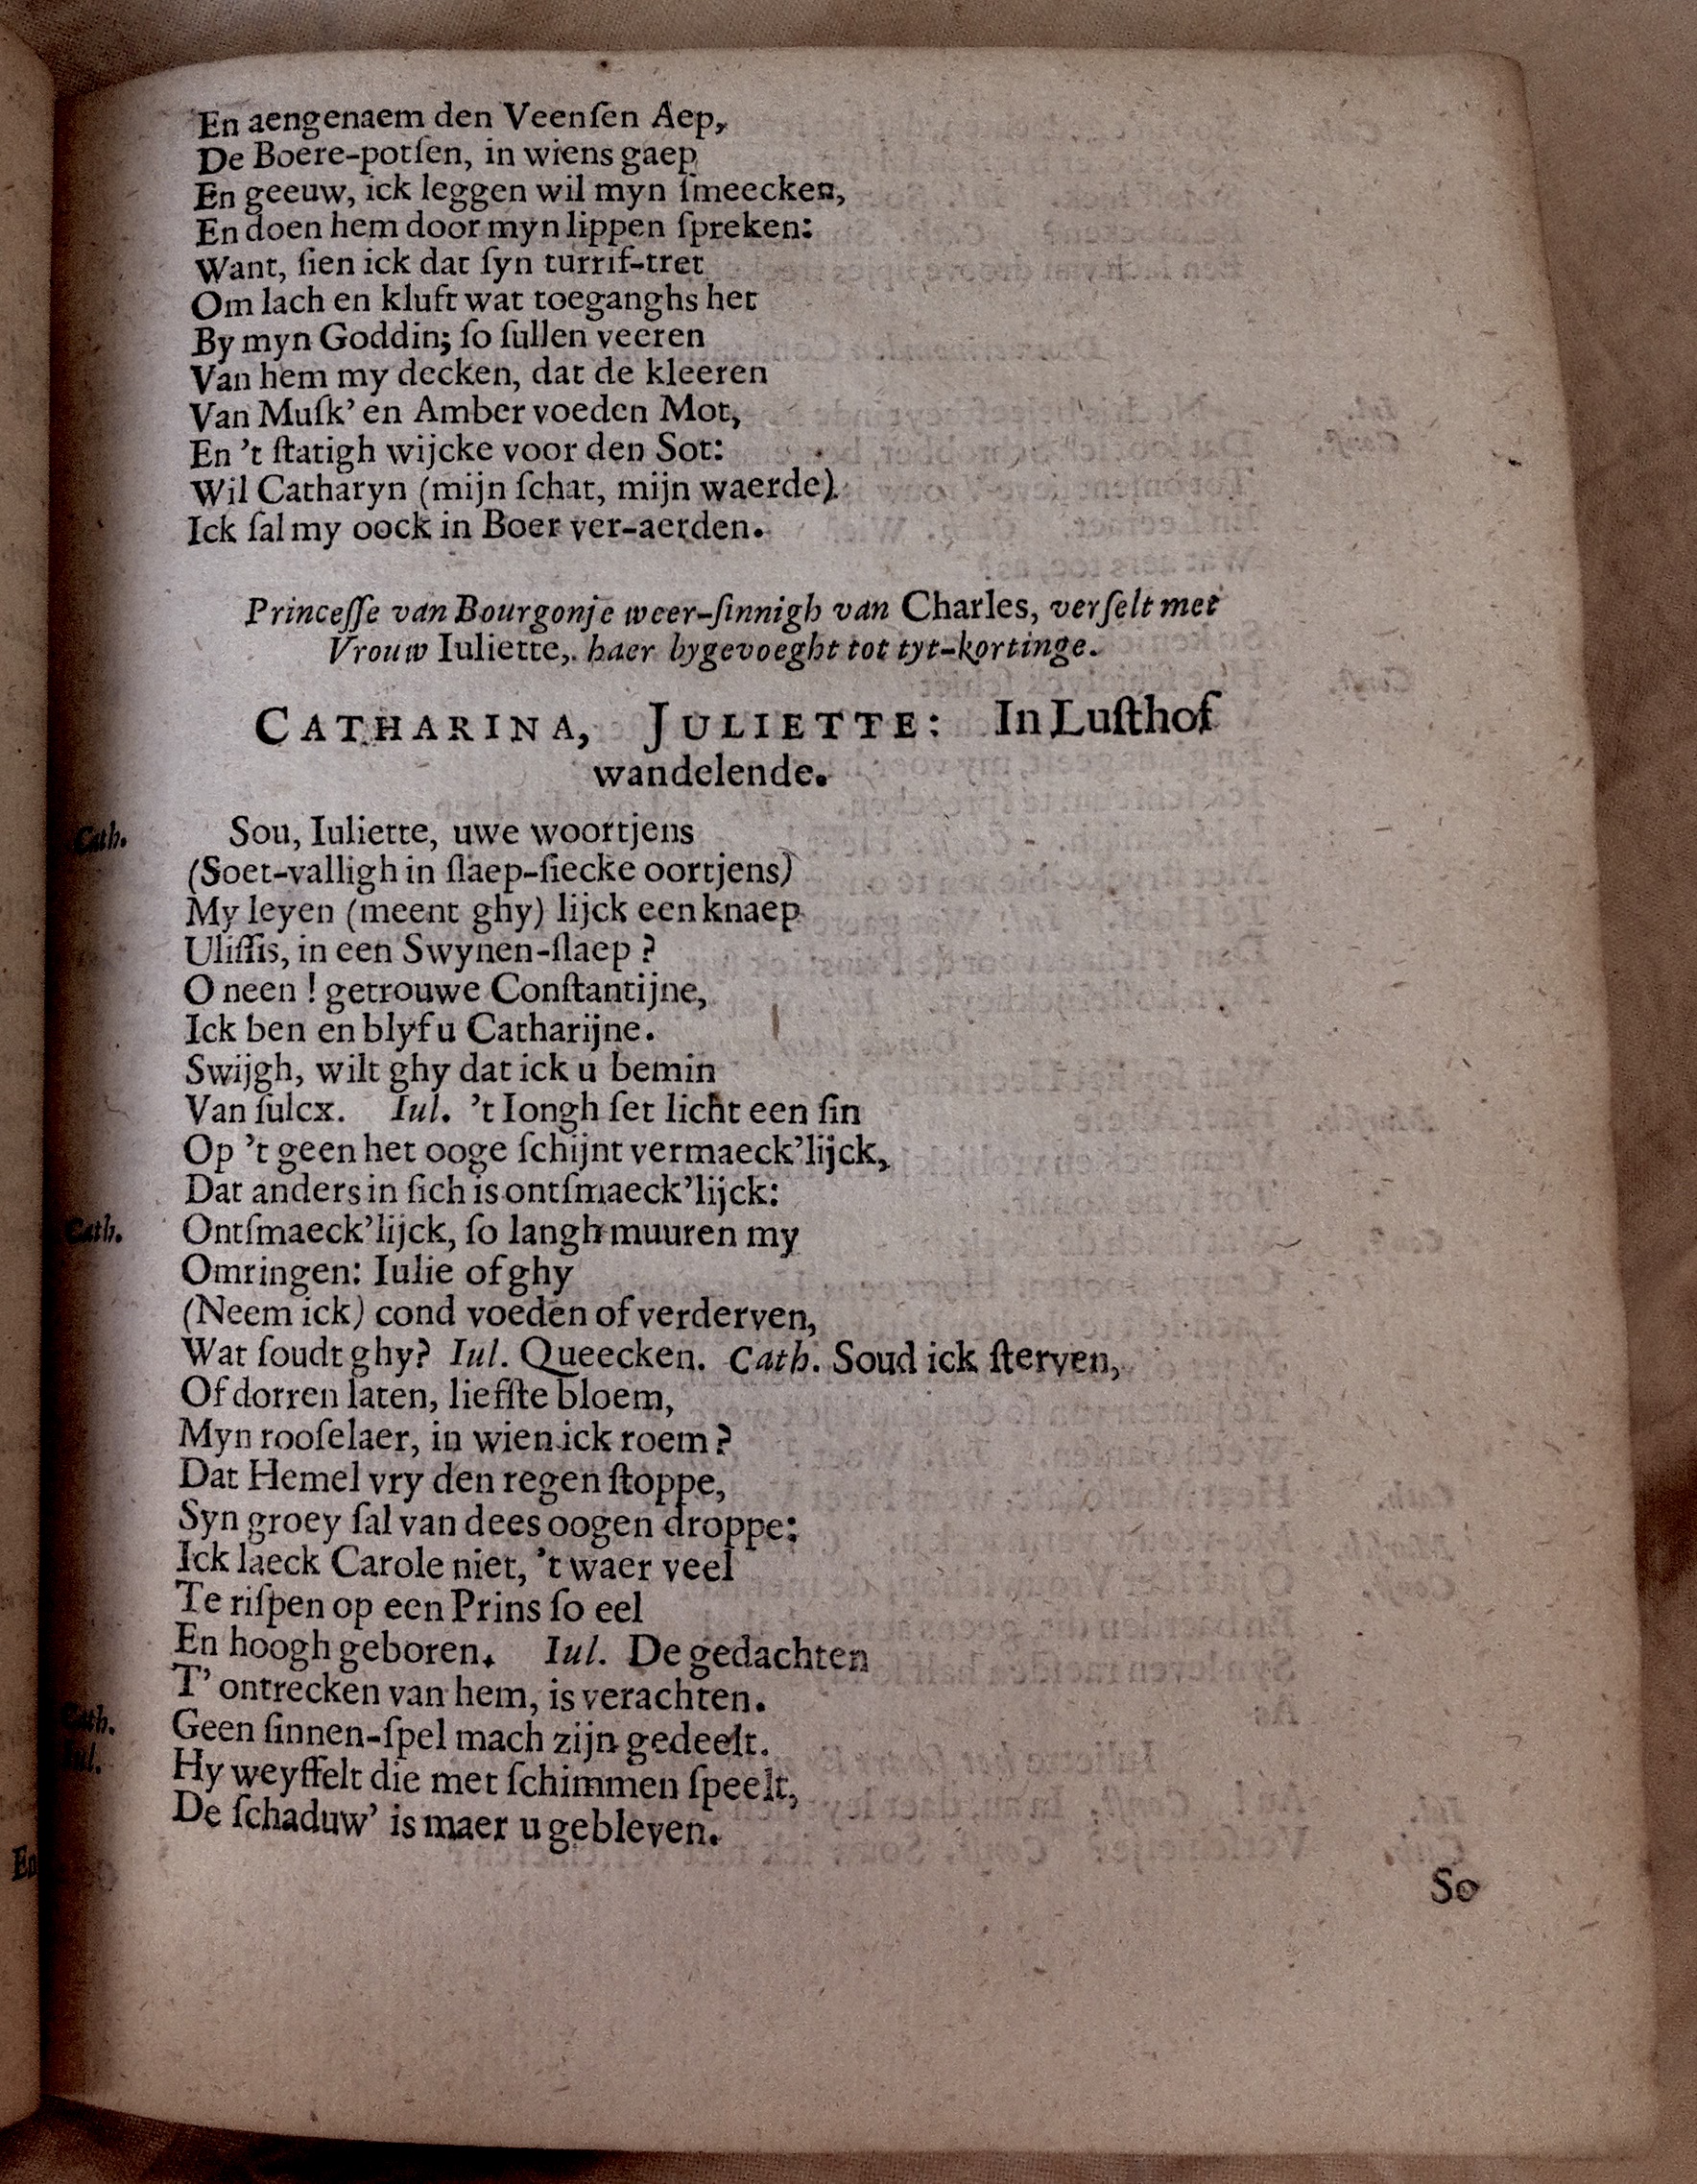 En aengenaem den Veenſen Aep,
De Boere-potſen, in wiens gaep
En geeuw, ick leggen wil myn ſmeecken,
En doen hem door myn lippen ſpreken:
Want, ſien ick dat ſyn turrif-tret
Om lach en kluft wat toeganghs het
By myn Goddin; ſo ſullen veeren
Van hem my decken, dat de kleeren
Van Muſk' en Amber voeden Mot,
En 't ſtatigh wijcke voor den Sot:
Wil Catharyn (mijn ſchat, mijn waerde)
Ick ſal my oock in Boer ver-aerden.
Princeſſe van Bourgonje weer-ſinnigh van Charles, verſelt met
Vrouw Iuliette, haer bygevoeght tot tyt-kortinge.
CATHARINA, JULIETTE: In Luſthof
wandelende.
Cath. Sou, Iuliette, uwe woortjens
(Soet-valligh in ſlaep-ſiecke oortjens)
My leyen (meent ghy) lijck een knaep
Uliſſis, in een Swynen-ſlaep?
O neen! getrouwe Conſtantijne,
Ick ben en blyf u Catharijne.
Swijgh, wilt ghy dat ick u bemin
Van ſulcx. Iul. 't Iongh ſet licht een ſin
Op 't geen het ooge ſchijnt vermaeck'lijck,
Dat anders in ſich is ontſmaeck'lijck:
Cath. Ontſmaeck'lijck, ſo langh muuren my
Omringen: Iulie of ghy
(Neem ick) cond voeden of verderven,
Wat ſoudt ghy? Iul. Queecken. Cath. Soud ick ſterven,
Of dorren laten, liefſte bloem,
Myn rooſelaer, in wien ick roem?
Dat Hemel vry den regen ſtoppe,
Syn groey ſal van dees oogen droppe:
Ick laeck Carole niet, 't waer veel
Te riſpen op een Prins ſo eel
En hoogh geboren. Iul. De gedachten
T' ontrecken van hem, is verachten.
Cath. Geen ſinnen-ſpel mach zijn gedeelt.
Iul. Hy weyffelt die met ſchimmen ſpeelt,
De ſchaduw' is maer u gebleven.
So
En